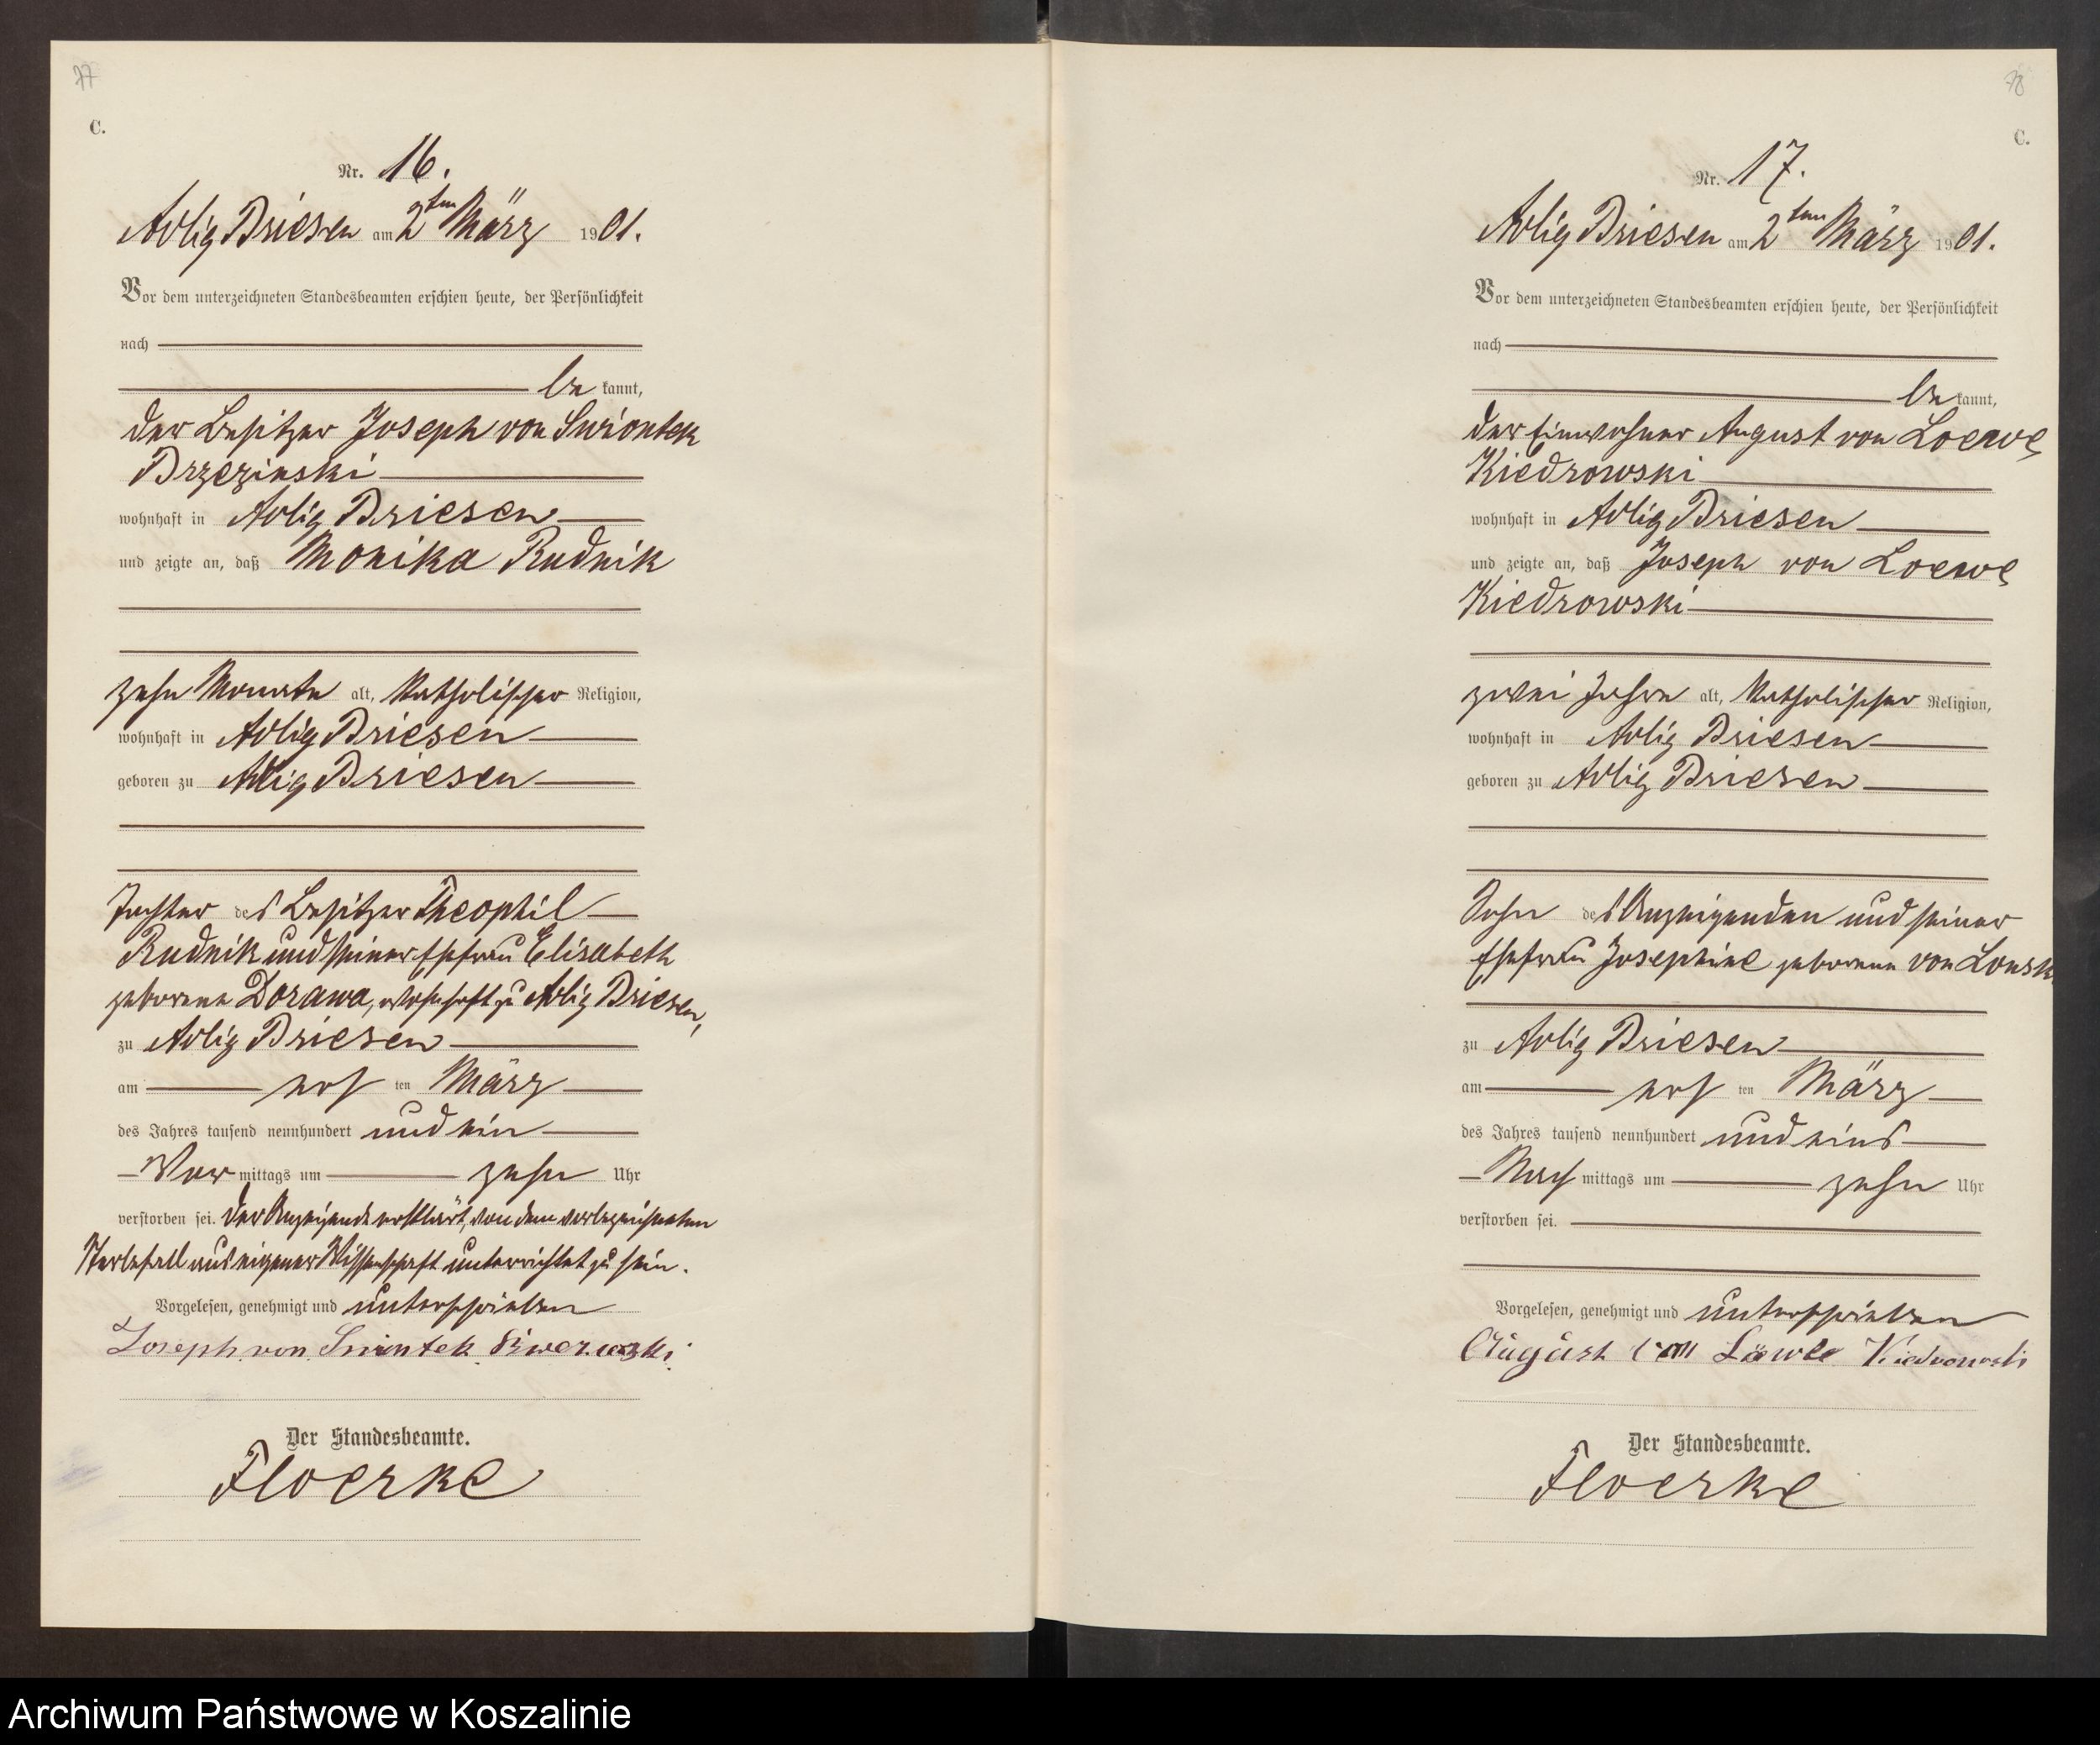 77
C.
Nr. 16.
Adlig Briesen am 2ten März 1901.
Vor dem unterzeichneten Standesbeamten erschien heute, der Persönlichkeit
nach
be kannt,
der Besitzer Joseph von
Brzezinski
wohnhaft in Adlig Briesen
und zeigte an, daß Monika Rudnik
zehn Monate alt, katholischer Religion,
wohnhaft in Adlig Briesen
geboren zu Adlig Briesen
Tochter des Besitzer Theophil
Rudnik und seiner Ehefrau Elisabeth
geborene Dorawa, wohnhaft zu Adlig Briesen,
zu Adlig Briesen
am ersten März
des Jahres tausend neunhundert und ein
Vor mittags um zehn Uhr
verstorben sei. Der Anzeigende erklärt, von dem vorbezeichneten
Sterbefall aus eigener Wissenschaft unterrichtet zu sein.
Vorgelesen, genehmigt und unterschrieben
Joseph von
Der Standesbeamte.
Floerke
78
C.
Nr. 17.
Adlig Briesen am 2ten März 1901.
Vor dem unterzeichneten Standesbeamten erschien heute, der Persönlichkeit
nach
be kannt,
der Einwohner August von Loewe
Kiedrowski
wohnhaft in Adlig Briesen
und zeigte an, daß Joseph von Loewe
Kiedrowski
zwei Jahre alt, katholischer Religion,
wohnhaft in Adlig Briesen
geboren zu Adlig Briesen
Sohn des Anzeigenden und seiner
Ehefrau Josephine geborene von
zu Adlig Briesen
am ersten März
des Jahres tausend neunhundert und eins
Nach mittags um zehn Uhr
verstorben sei.
Vorgelesen, genehmigt und unterschrieben
August von Löwe Kiedrowski
Der Standesbeamte.
Floerke
Archiwum Państwowe w Koszalinie